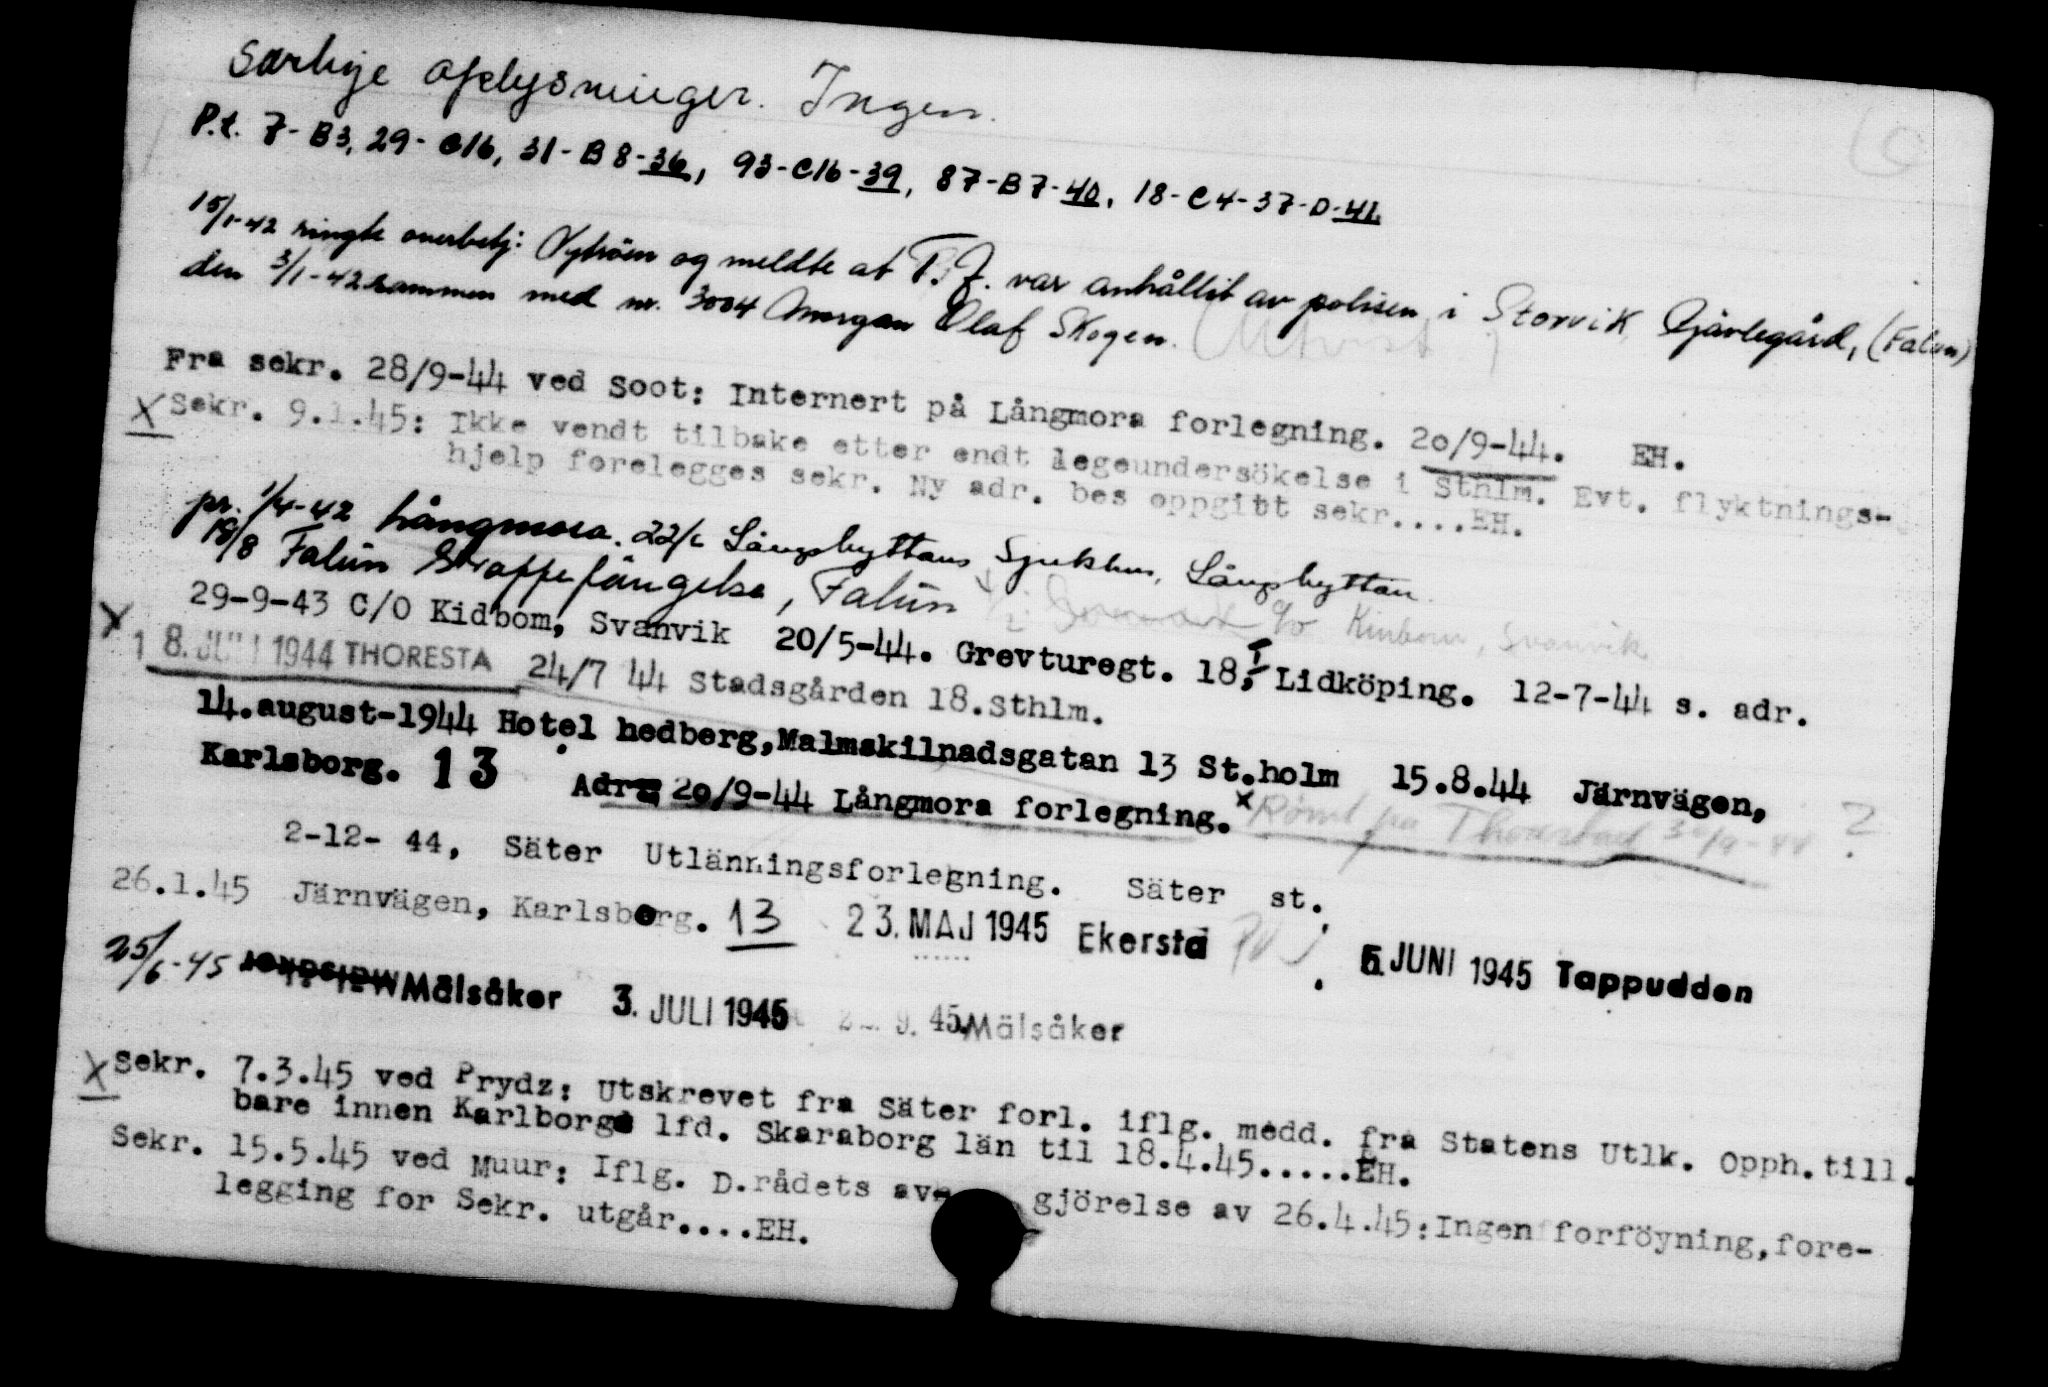 Særlige oplysninger. Ingen.
P.t. 7-B3, 29-C16, 31-B8-36, 93-C16-39, 87-B7-40, 18-C4-37-D-41
15/1-42 ringte overbetj: Nyström og meldte at T.J. var anhållit av polisen i Storvik, Gjävlegård, (Falun)
den 3/1-42 sammen med nr. 3004 Morgan Olaf Skogen.
Fra sekr. 28/9-44 ved Soot: Internert på Långmora forlegning. 20/9-44. EH.
X Sekr. 9.1.45: Ikke vendt tilbake etter endt legeundersökelse i Sthlm. Evt. flyktnings-
hjelp forelegges sekr. Ny adr. bes oppgitt sekr....EH.
pr. 1/4-42 Långmora. 22/6 Långshyttans Sjukhus, Långshyttan.
19/8 Falun Straffefängelse, Falun c/o Kinbom, Svanvik
29-9-43 C/O Kidbom, Svanvik 20/5-44. Grevturegt. 18, I Lidköping. 12-7-44 s. adr.
X 18. JULI 1944 THORESTA 24/7 44 Stadsgården 18. Sthlm.
14.august-1944 Hotel hedberg, Malmskilnadsgatan 13 St.holm 15.8.44 Järnvägen,
Karlsborg. 13 Adr. 20/9-44 Långmora forlegning. x Römt fra Thorestad 30/9-44 ?
2-12- 44, Säter Utlänningsforlegning. Säter st.
26.1.45 Järnvägen, Karlsborg. 13 23. MAJ 1945 Ekerstd 5. JUNI 1945 Tappudden
25/6-45 Mälsåker 3. JULI 1945 9. 45. Mälsåker
X Sekr. 7.3.45 ved Prydz: Utskrevet fra Säter forl. iflg. medd. fra Statens Utlk. Opph.till.
bare innen Karlborgs lfd. Skaraborg län til 18.4.45.....EH.
Sekr. 15.5.45 ved Muur: Iflg. D.rådets av- gjörelse av 26.4.45: Ingen forföyning, fore-
legging for Sekr. utgår....EH.